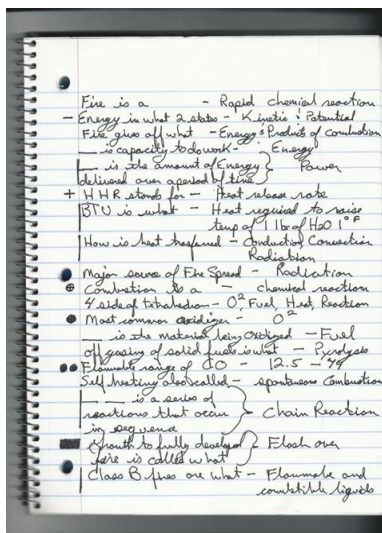 Fire is a - Rapid chemical reaction
- Energy in what 2 states - Kinetic & Potential
Fire gives off what - Energy & Products of combustion
__ is capacity to do work - Energy
__ is the amount of Energy } Power
delivered over a period of time
+ HHR stands for - Heat release rate
BTU is what - Heat required to raise
temp of 1 lb of H2O 1°F
How is heat trasfered - Conduction Convection
Radiation
Major source of Fire Spread - Radiation
Combustion is a - chemical reaction
4 side of tetrahedron - O2 Fuel, Heat, Reaction
Most common oxidizer - O2
__ is the material being oxidized - Fuel
off gasing of solid fuels is what - Pyrolysis
Flammable range of CO - 12.5 - 74
Self heating also called - spontaneous combustion
__ __ is a series of
reactions that occur } Chain Reaction
in sequence
Growth to fully developed } Flash over
fire is called what
Class B fires are what - Flammable and
combustible liquids